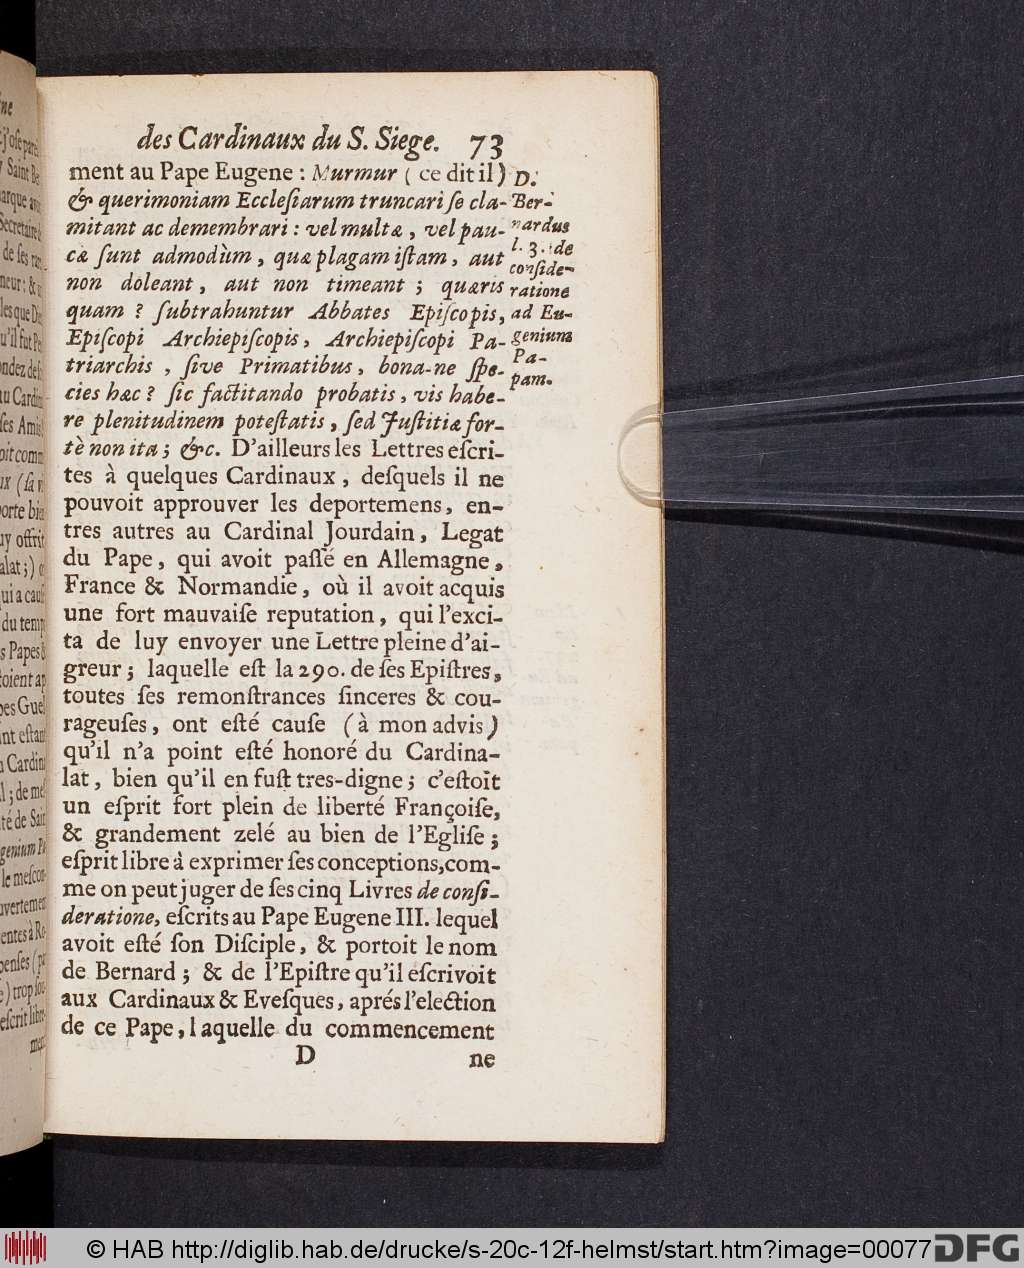 des Cardinaux du S. Siege. 73
ment au Pape Eugene : Murmur ( ce dit il )
& querimoniam Eccleſiarum truncari ſe cla-
mitant ac demembrari : vel multæ , vel pau-
cæ ſunt admodùm , quæ plagam iſtam , aut
non doleant , aut non timeant ; quæris
quam ? ſubtrahuntur Abbates Epiſcopis,
Epiſcopi Archiepiſcopis, Archiepiſcopi Pa-
triarchis , ſive Primatibus, bona-ne ſpe-
cies hæc ? ſic factitando probatis , vis habe-
re plenitudinem poteſtatis , ſed Juſtitiæ for-
tè non ita ; &c. D'ailleurs les Lettres eſcri-
tes à quelques Cardinaux , deſquels il ne
pouvoit approuver les deportemens, en-
tres autres au Cardinal Jourdain, Legat
du Pape, qui avoit paſſé en Allemagne,
France & Normandie, où il avoit acquis
une fort mauvaiſe reputation, qui l'exci-
ta de luy envoyer une Lettre pleine d'ai-
greur ; laquelle eſt la 290. de ſes Epiſtres,
toutes ſes remonſtrances ſinceres & cou-
rageuſes, ont eſté cauſe ( à mon advis )
qu'il n'a point eſté honoré du Cardina-
lat, bien qu'il en fuſt tres-digne ; c'eſtoit
un eſprit fort plein de liberté Françoiſe,
& grandement zelé au bien de l'Egliſe ;
eſprit libre à exprimer ſes conceptions, com-
me on peut juger de ſes cinq Livres de conſi-
deratione, eſcrits au Pape Eugene III. lequel
avoit eſté ſon Diſciple, & portoit le nom
de Bernard ; & de l'Epiſtre qu'il eſcrivoit
aux Cardinaux & Eveſques, aprés l'election
de ce Pape, laquelle du commencement
D ne
D.
Ber-
nardus
l. 3. de
conſide-
ratione
ad Eu-
genium
Pa-
pam.
© HAB http://diglib.hab.de/drucke/s-20c-12f-helmst/start.htm?image=00077
DFG